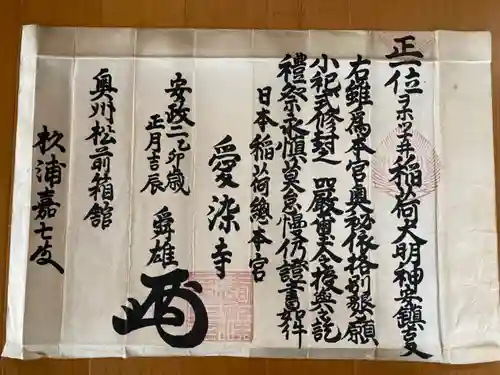 正一位ヲホツキ稲荷大明神安鎮之事
右雖為本宮奥秘依格別懇願
小祀式修封之 厳重令授与之訖
禮祭永慎莫怠慢仍證書如件
日本稲荷總本宮
愛染寺
安政二乙卯歳
正月吉辰
舜雄
奥州松前箱舘
杦浦嘉七